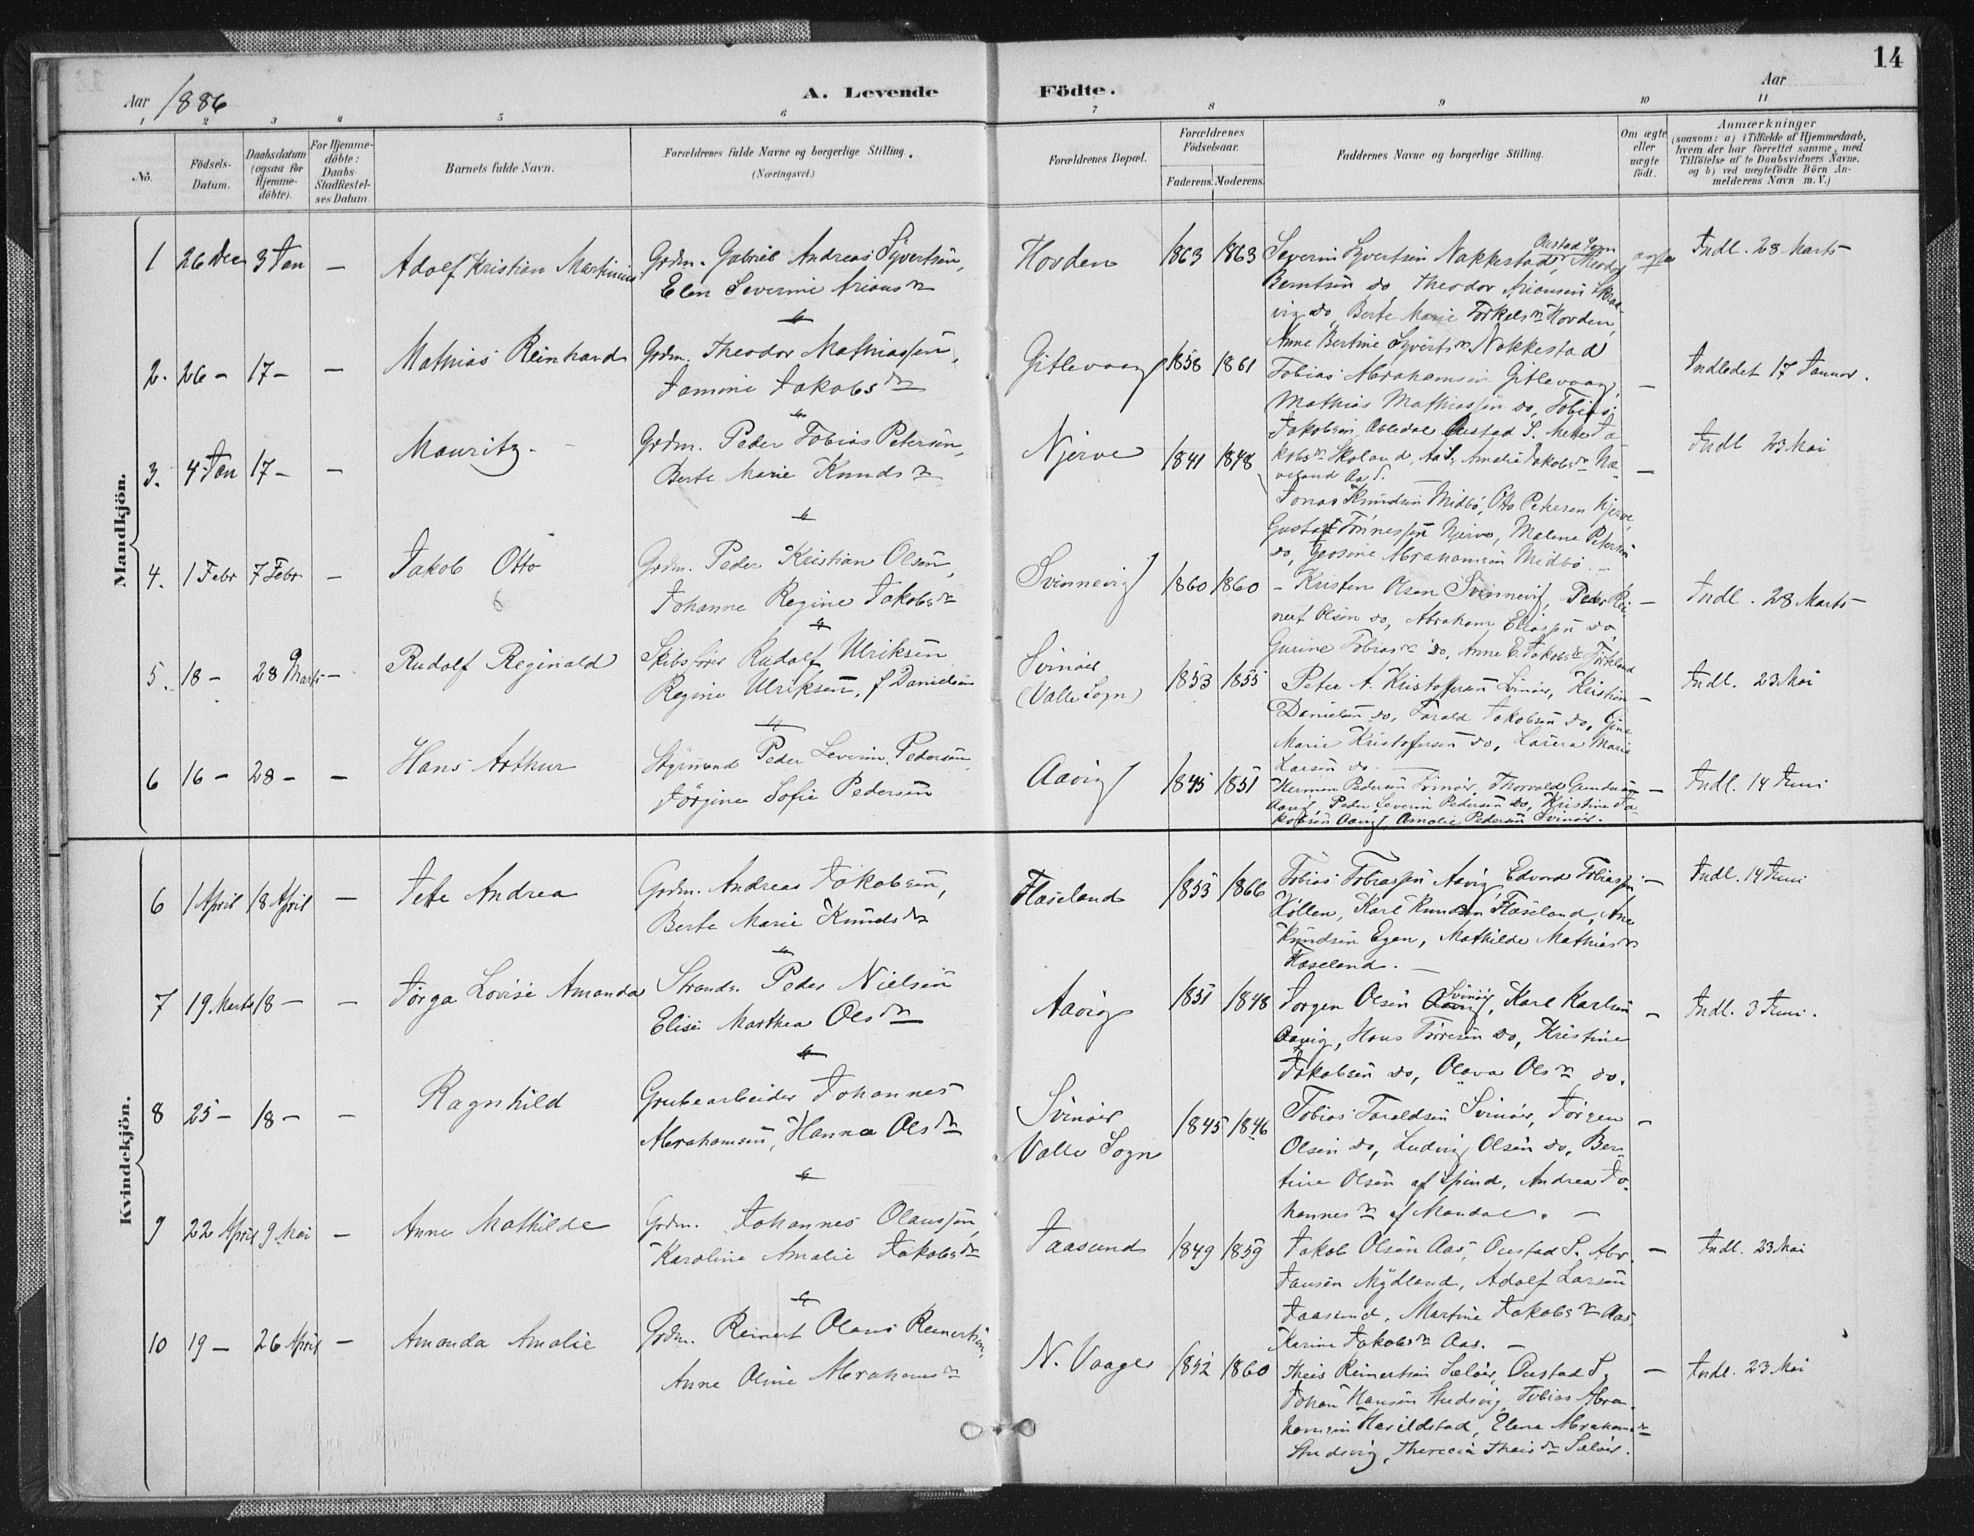 14
Aar 1886
A. Levende Födte.
Aar
1 2 3 4 5 6 7 8 9 10 11
No.
Födsels-Datum.
Daabsdatum (ogsaa for Hjemmedöbte).
For Hjemmedöbte: Daabs Stadfæstelses Datum.
Barnets fulde Navn.
Forældrenes fulde Navne og borgerlige Stilling.
(Næringsvei.)
Forældrenes Bopæl.
Forældrenes Födselsaar.
Faderens. Moderens.
Faddernes Navne og borgerlige Stilling.
Om ægte eller uægte födt.
Anmærkninger
(saasom: a) i Tilfælde af Hjemmedaab, hvem der har forrettet samme, med Tilföielse af to Daabsvidners Navne. og b) ved uægtefödte Börn Anmelderens Navn m. V.)
Mandkjön.
1 26 Dec 3 Jan — Adolf Kristian Martinius
Grdm. Gabriel Andreas Syvertsen,
Elen Severine Arians dr
Hovden 1863 1863
Severin Syvertsen Nakkestad, Oustad Sogn
Berntsen do Theodor Ariansen
do, Berte Marie Torkels dr Hovden,
Anne Bertine Syverts dr Nakkestad
ægte
Indl. 28 Marts
2. 26 — 17 — — Mathias Reinhard
Grdm. Theodor Mathiassen,
Jamine Jakobs dr
Gitlevaag 1858 1861
Tobias Abrahamsen Gitlevaag,
Mathias Mathiassen do, Tobias
Jakobsen, Oustad S. Mette Jakobs dr
Skoland, Amalie Jakobs dr
—
Indledet 17 Januar.
3. 4 Jan 17 — — Mauritz —
Grdm. Peder Tobias Petersen,
Berte Marie Knuds dr
Njerve 1841 1848
Jonas Knudsen Midbö, Otto Petersen Njerve,
Gustav Tönnessen Njerve, Malene Petersen
do, Abrahamsen Midbö. —
—
Indl 23 Mai
4. 1 Febr 7 Febr — Jakob Otto
6
Grdm. Peder Kristian Olsen,
Johanne Regine Jakobs dr
Svinnevig 1860 1860
— Kristen Olsen Svinnevig, Peder Reinert
Olsen do, Abraham Eliassen do,
Gurine Tobias dr do, Anne E. Jakobs dr
—
Indl. 28 Marts —
5. 18 — 28 Marts — Rudolf Reginald
Skibsförer Rudolf Ulriksen
Regine Ulriksen, f. Danielsen
Svinöer
(Valle Sogn)
1853 1855
Peter A. Kristofersen Svinöer, Kristian
Danielsen do, Tarald Jakobsen do, Gine
Marie Kristofersen do, Laura Marie
Larsen do —
—
Indl. 23 Mai
6 16 — 28 — — Hans Arthur
Styrmand Peder Severin Pedersen
Jörgine Sofie Pedersen
Aavig 1845 1851
Herman Pedersen Svinöer, Thorvald Gundersen
Aavig, Peder Severin Pedersen do, Kristine Jakobsen
Aavig, Amalie Pedersen Svinöer.
—
Indl. 14 Juni
Kvindekjön.
6 1 April 18 April — Jete Andrea
Grdm. Andreas Jakobsen,
Berte Marie Knuds dr
Haseland 1853 1866
Tobias Tobiassen Aavig, Edvard Tobiassen
Kollen, Karl Knudsen Haseland, Ane
Knudsen Egen, Mathilde Mathias dr
Haseland. —
—
Indl. 14 Juni
7 19 Marts 18 — — Jörga Lovise Amanda
Strands. Peder Nielsen
Elise Marthea Ols dr
Aavig 1851 1848
Jörgen Olsen Svinöer, Karl Karlsen
Aavig, Hans Törresen do, Kristine
Jakobsen do, Olava Ols dr do.
—
Indl. 3 Juni.
8 25 — 18 — — Ragnhild
Grubearbeider Johannes
Abrahamsen, Hanna Ols dr
Svinöer
Valle Sogn
1845 1846
Tobias Taraldsen Svinöer, Jörgen
Olsen do, Ludvig Olsen do, Bertine
Olsen af Spind, Andrea Johannes dr
af Mandal. —
—
9 22 April 9 Mai — Anne Mathilde
Grdm. Johannes Olaussen,
Karoline Amalie Jakobs dr
Jaasund 1849 1859
Jakob Olsen Aas, Oustad S. Abr.
Jansen Mydland, Adolf Larsen
Jaasund, Martine Jakobs dr Aas,
Karine Jakobs dr Aas. —
—
Indl. 23 Mai
10 19 — 26 April — Amanda Amalie
Grdm. Reinert Olaus Reinertsen,
Anne Oline Abrahams dr
N. Vaage 1852 1860
Theis Reinertsen Sælör, Oustad S,
Johan Hansen Studsvig, Tobias Abrahamsen
Harildstad, Elene Abrahams dr
Studsvig, Therecia Theis dr Sælör.
—
Indl. 23 Mai